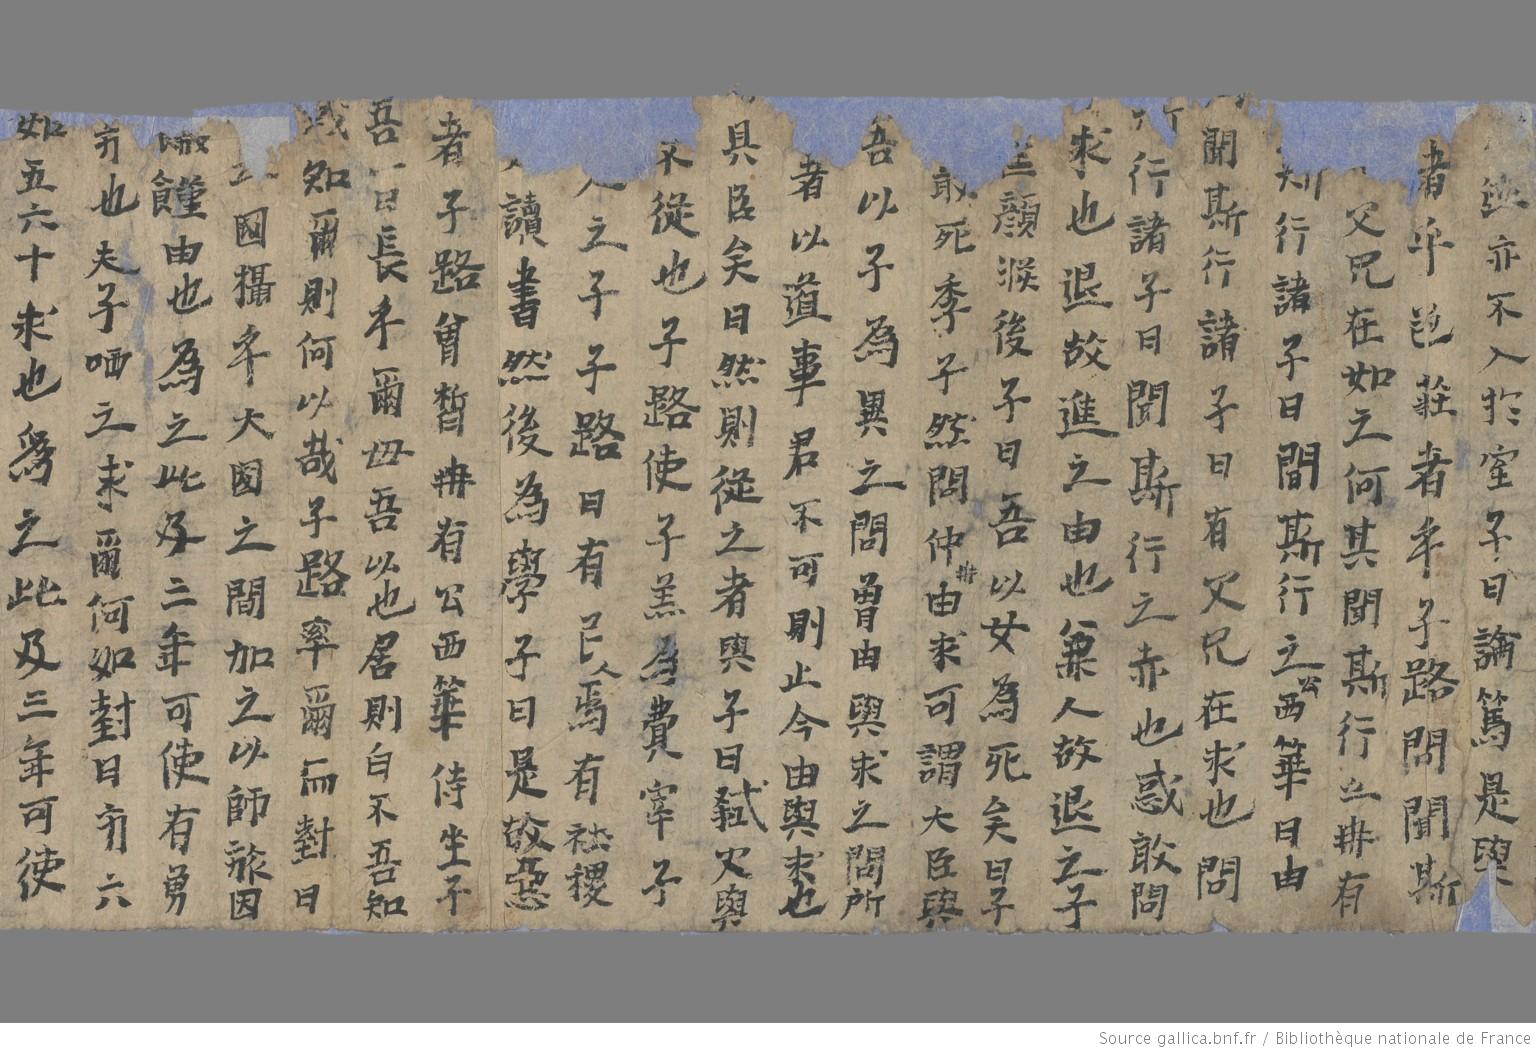 亦不入於室子曰論篤是與
者乎色莊者乎子路問聞斯
父兄在如之何其聞斯行之冉有
行諸子曰聞斯行之公西華曰由
聞斯行諸子曰有父兄在求也問
行諸子曰聞斯行之赤也惑敢問
求也退故進之由也兼人故退之子
顏淵後子曰吾以女為死矣曰子
敢死季子然問仲由冉求可謂大臣與
吾以子為異之問曾由與求之問所
者以道事君不可則止今由與求也
具臣矣曰然則從之者與子曰弒父與
不從也子路使子羔為費宰子
人之子子路曰有民人焉有社稷
讀書然後為學子曰是故惡
者子路曾晳冉有公西華侍坐子
吾一日長乎爾毋吾以也居則曰不吾知
或知爾則何以哉子路率爾而對曰
國攝乎大國之間加之以師旅因
饑饉由也為之比及二年可使有勇
方也夫子哂之求爾何如對曰方六
如五六十求也為之比及三年可使
Source gallica.bnf.fr / Bibliothèque nationale de France